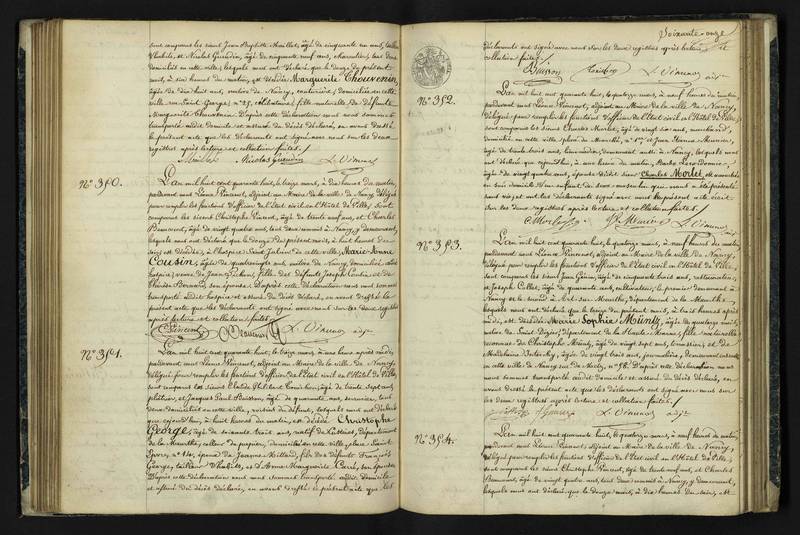 sont comparus les sieurs Jean Baptiste Maillot, âgé de cinquante un ans, tailleur
d'habits, et Nicolas Guerdin, âgé de cinquante neuf ans, charcutier, tous deux
domiciliés en cette ville; lesquels nous ont déclaré que le douze du présent
mois, à six heures du matin, est décédée Marguerite Thouvenin,
âgée de dix huit ans, native de Nancy, couturière, domiciliée en cette
ville rue Saint Georges nº 25, célibataire, fille naturelle de défunte
Marguerite Thouvenin. D'après cette déclaration nous nous sommes
transporté audit domicile et assuré du décès déclaré, en avons dressé
le présent acte que les déclarants ont signé avec nous sur les deux
registres après lecture et collation faites./
Nicolas Guerdin L. Vincenot
Nº 350.
L'an mil huit cent quarante huit, le treize mars, à dix heures du matin,
pardevant nous Léonce Vincenot, adjoint au Maire de la ville de Nancy, délégué
pour remplir les fonctions d'officier de l'État civil en l'Hôtel de Ville, sont
comparus les sieurs Christophe Pincent, âgé de trente neuf ans, et Charles
Beaucourt, âgé de vingt quatre ans, tous deux à Nancy y demeurant,
lesquels nous ont déclaré que le douze du présent mois, à huit heures du
soir, est décédée, à l'hospice Saint Julien de cette ville, Marie Anne
Cousin, âgée de quatre vingts ans, native de Nancy, domiciliée audit
hospice, veuve de Jean, fille des défunts Joseph Cousin, et de
Thérèse son épouse. D'après cette déclaration nous nous sommes
transporté audit hospice et assuré du décès déclaré, en avons dressé le
présent acte que les déclarants ont signé avec nous sur les deux registres
après lecture et collation faites./
L. Vincenot adjt
Nº 351.
L'an mil huit cent quarante huit, le treize mars, à une heure après midi,
pardevant nous Léonce Vincenot, adjoint au Maire de la ville de Nancy,
délégué pour remplir les fonctions d'officier de l'État civil en l'Hôtel de Ville,
sont comparus les sieurs Claude Philibert, âgé de trente sept ans,
plâtrier, et Jacques Paul Buisson, âgé de quarante ans, serrurier, tous
deux domiciliés en cette ville, voisins du défunt, lesquels nous ont déclaré
que cejourd'hui, à huit heures du matin, est décédé Christophe
George, âgé de soixante trois ans, natif de, département
de la Meurthe, colleur de papier, domicilié en cette ville, place Saint
Epvre, nº 14, époux de Jeanne, fils des défunts François
George, tailleur d'habits, et d'Anne Marguerite, son épouse.
D'après cette déclaration nous nous sommes transporté audit domicile
et assuré du décès déclaré, en avons dressé le présent acte que les
Soixante-onze
déclarants ont signé avec nous sur les deux registres après lecture et
collation faites./
Buisson L. Vincenot adjt
Nº 352.
L'an mil huit cent quarante huit, le quatorze mars, à neuf heures du matin,
pardevant nous Léonce Vincenot, adjoint au Maire de la ville de Nancy,
délégué pour remplir les fonctions d'officier de l'État civil en l'Hôtel de Ville,
sont comparus les sieurs Charles Morlet, âgé de vingt six ans, marchand,
domicilié en cette ville, place du Marché, nº 1er, et Jean Pierre Mennier,
âgé de trente trois ans, limonadier, demeurant aussi à Nancy, lesquels nous
ont déclaré que cejourd'hui, à une heure du matin, Barbe,
âgée de vingt quatre ans, épouse dudit sieur Charles Morlet, est accouchée
en son domicile d'un enfant du sexe masculin qui nous a été présenté
sans vie, et ont les déclarants signé avec nous le présent acte écrit
sur les deux registres après lecture et collation faites./
C. Morlet L. Vincenot
Nº 353.
L'an mil huit cent quarante huit, le quatorze mars, à neuf heures du matin,
pardevant nous Léonce Vincenot, adjoint au Maire de la ville de Nancy,
délégué pour remplir les fonctions d'officier de l'État civil en l'Hôtel de Ville,
sont comparus les sieurs Jean, âgé de cinquante trois ans, restaurateur,
et Joseph Collet, âgé de quarante ans, cultivateur, le premier demeurant à
Nancy et le second à Art-sur-Meurthe, département de la Meurthe,
lesquels nous ont déclaré que le treize du présent mois, à trois heures après
midi, est décédée Marie Sophie Müntz, âgée de quatorze mois,
native de Saint Dizier, département de la Haute Marne, fille naturelle
reconnue de Christophe Müntz, âgé de vingt sept ans, terrassier, et de
Madelaine, âgée de vingt trois ans, journalière, demeurant ensemble
en cette ville de Nancy, nº 98. D'après cette déclaration nous
nous sommes transporté audit domicile et assuré du décès déclaré, en
avons dressé le présent acte que les déclarants ont signé avec nous sur
les deux registres après lecture et collation faites./
L. Vincenot adjt
Nº 354.
L'an mil huit cent quarante huit, le quatorze mars, à neuf heures du matin,
pardevant nous Léonce Vincenot, adjoint au Maire de la ville de Nancy,
délégué pour remplir les fonctions d'officier de l'État civil en l'Hôtel de Ville,
sont comparus les sieurs Christophe Pincent, âgé de trente neuf ans, et Charles
Beaucourt, âgé de vingt quatre ans, tous deux à Nancy, y demeurant,
lesquels nous ont déclaré que le douze mars, à dix heures du soir, est